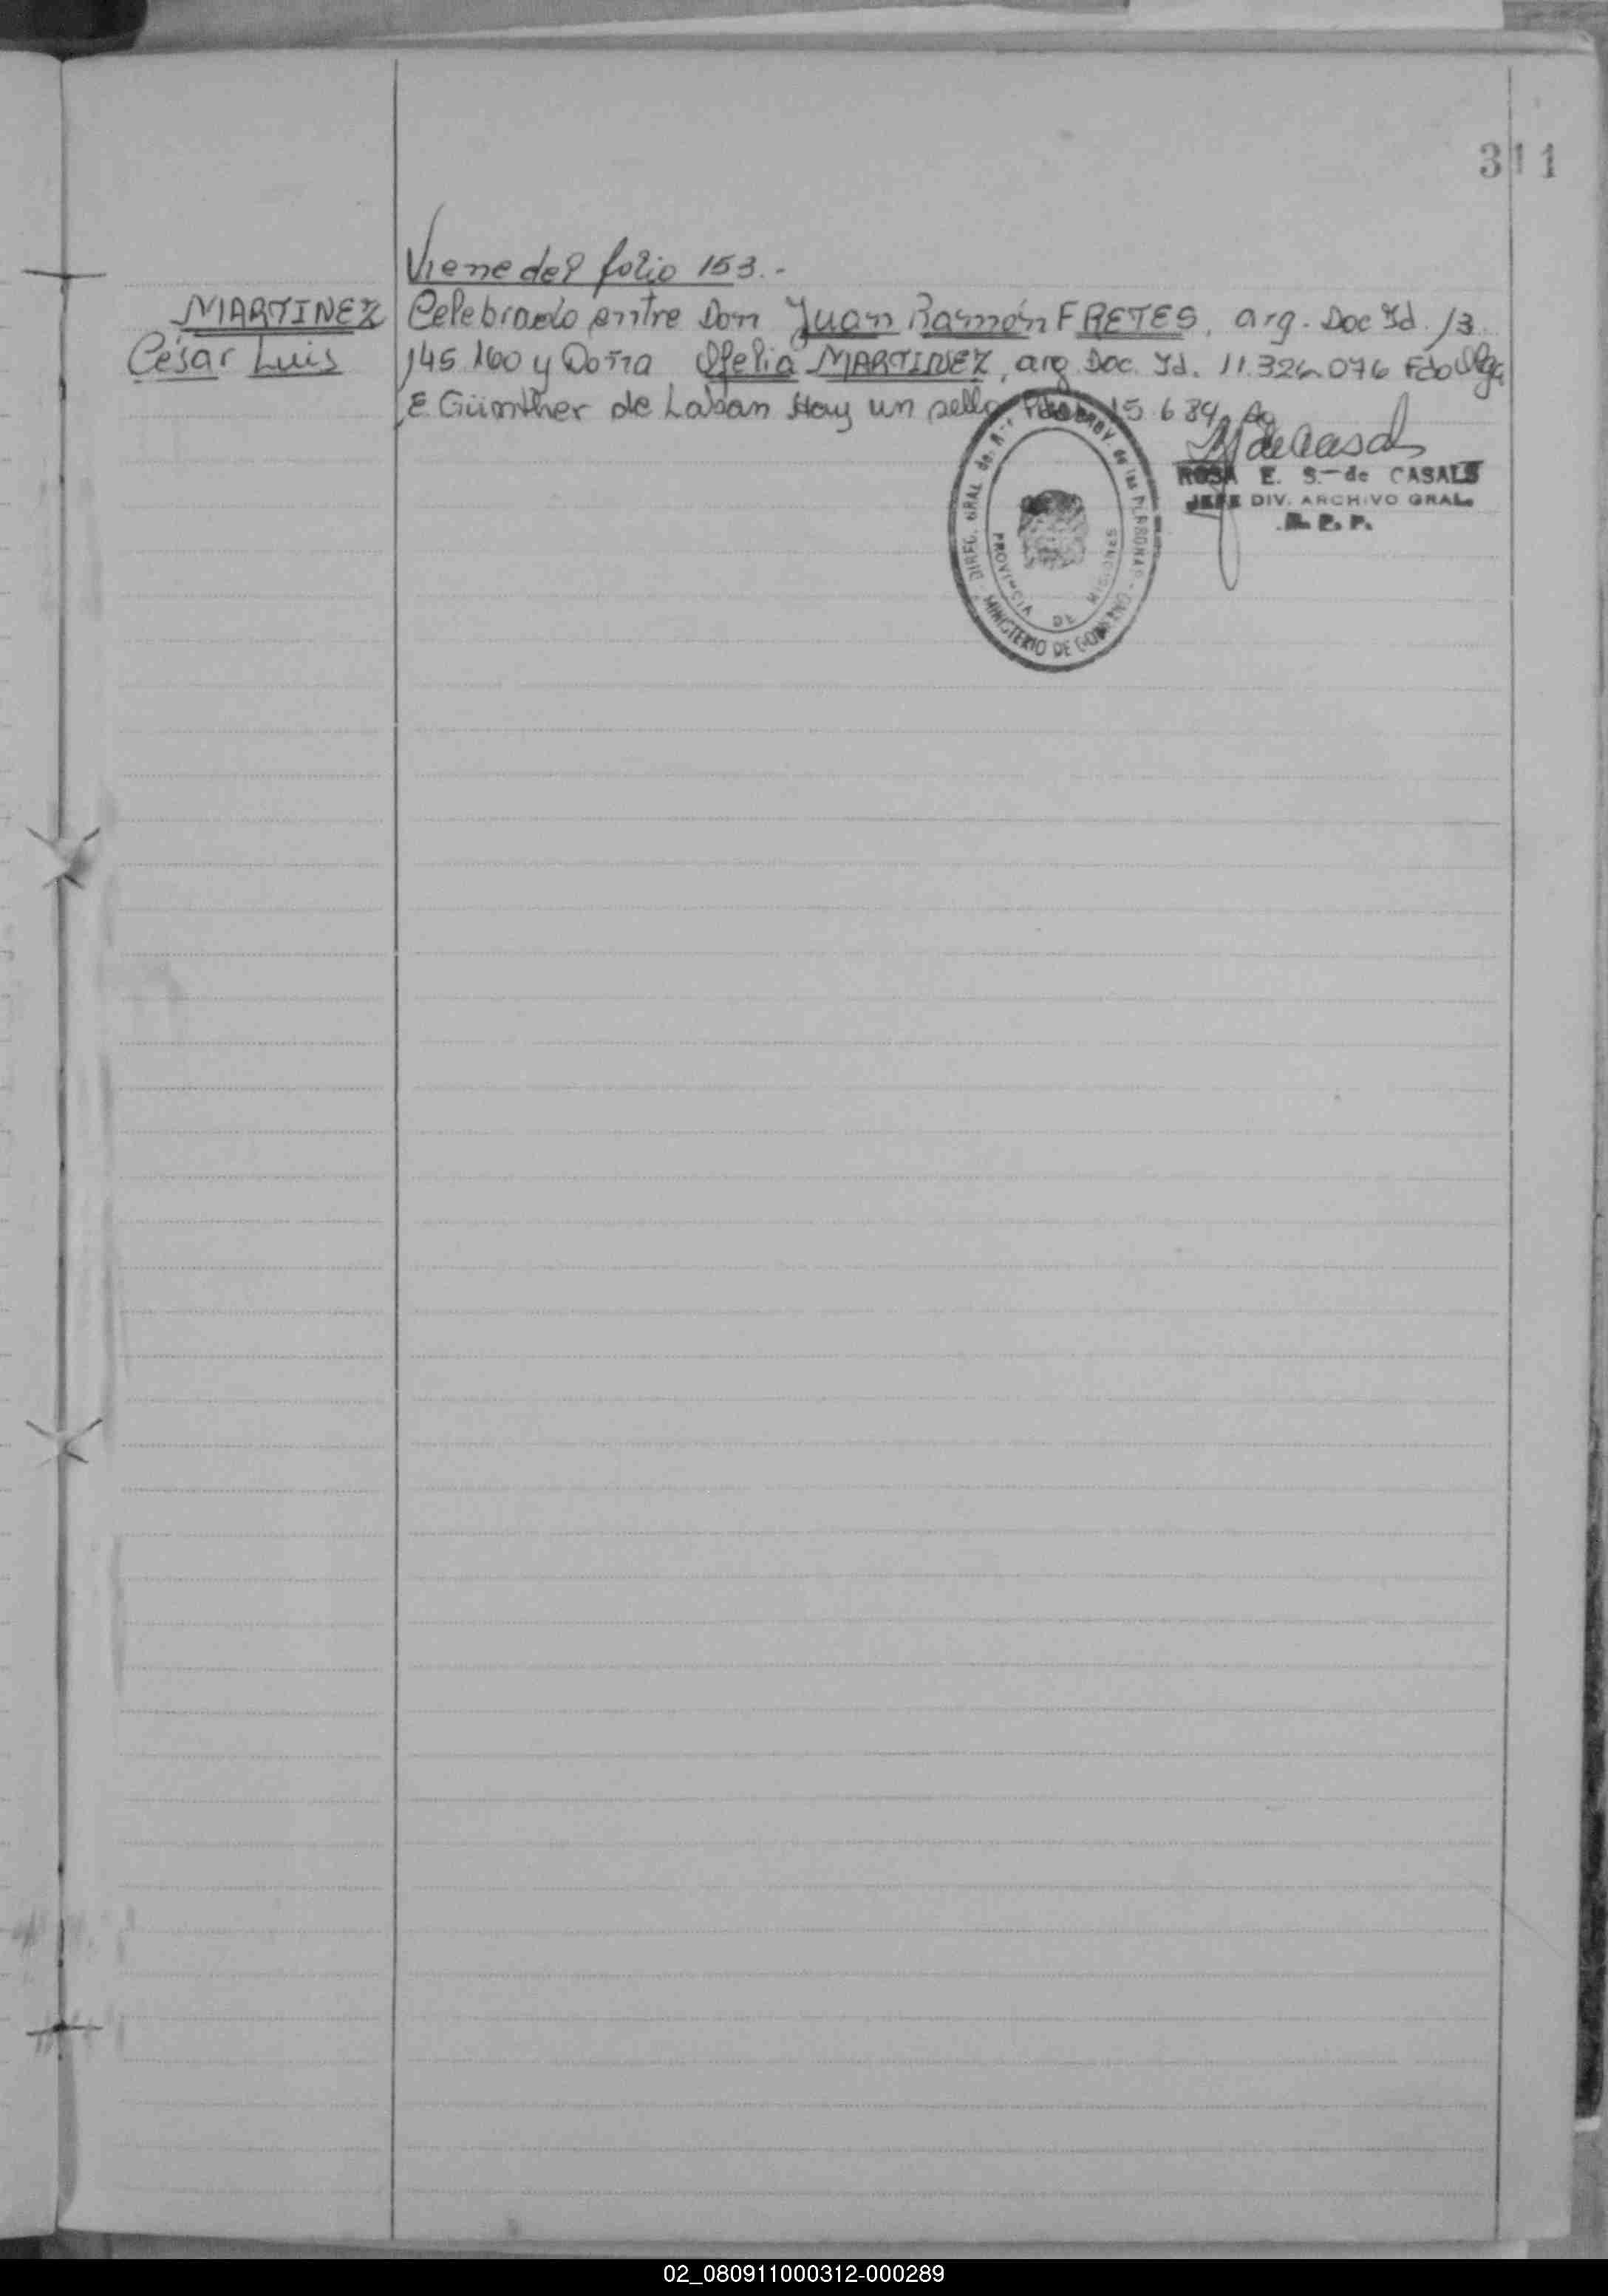 311
Viene del folio 153.-
MARTINEZ
César Luis
Celebrado entre Don Juan Ramón FRETES, arg. Doc Id. 13.
145.160 y Doña Ofelia MARTINEZ, arg Doc. Id. 11.326.076 Fdo Olga
E Günther de Laban Hay un sello 15 6 84
ROSA E. S. de CASALS
JEFE DIV. ARCHIVO GRAL.
R. P. P.
DIREC. GRAL de. PROV. de las PERSONAS
MINISTERIO DE GOBIERNO
PROVINCIA DE MISIONES
02_080911000312-000289